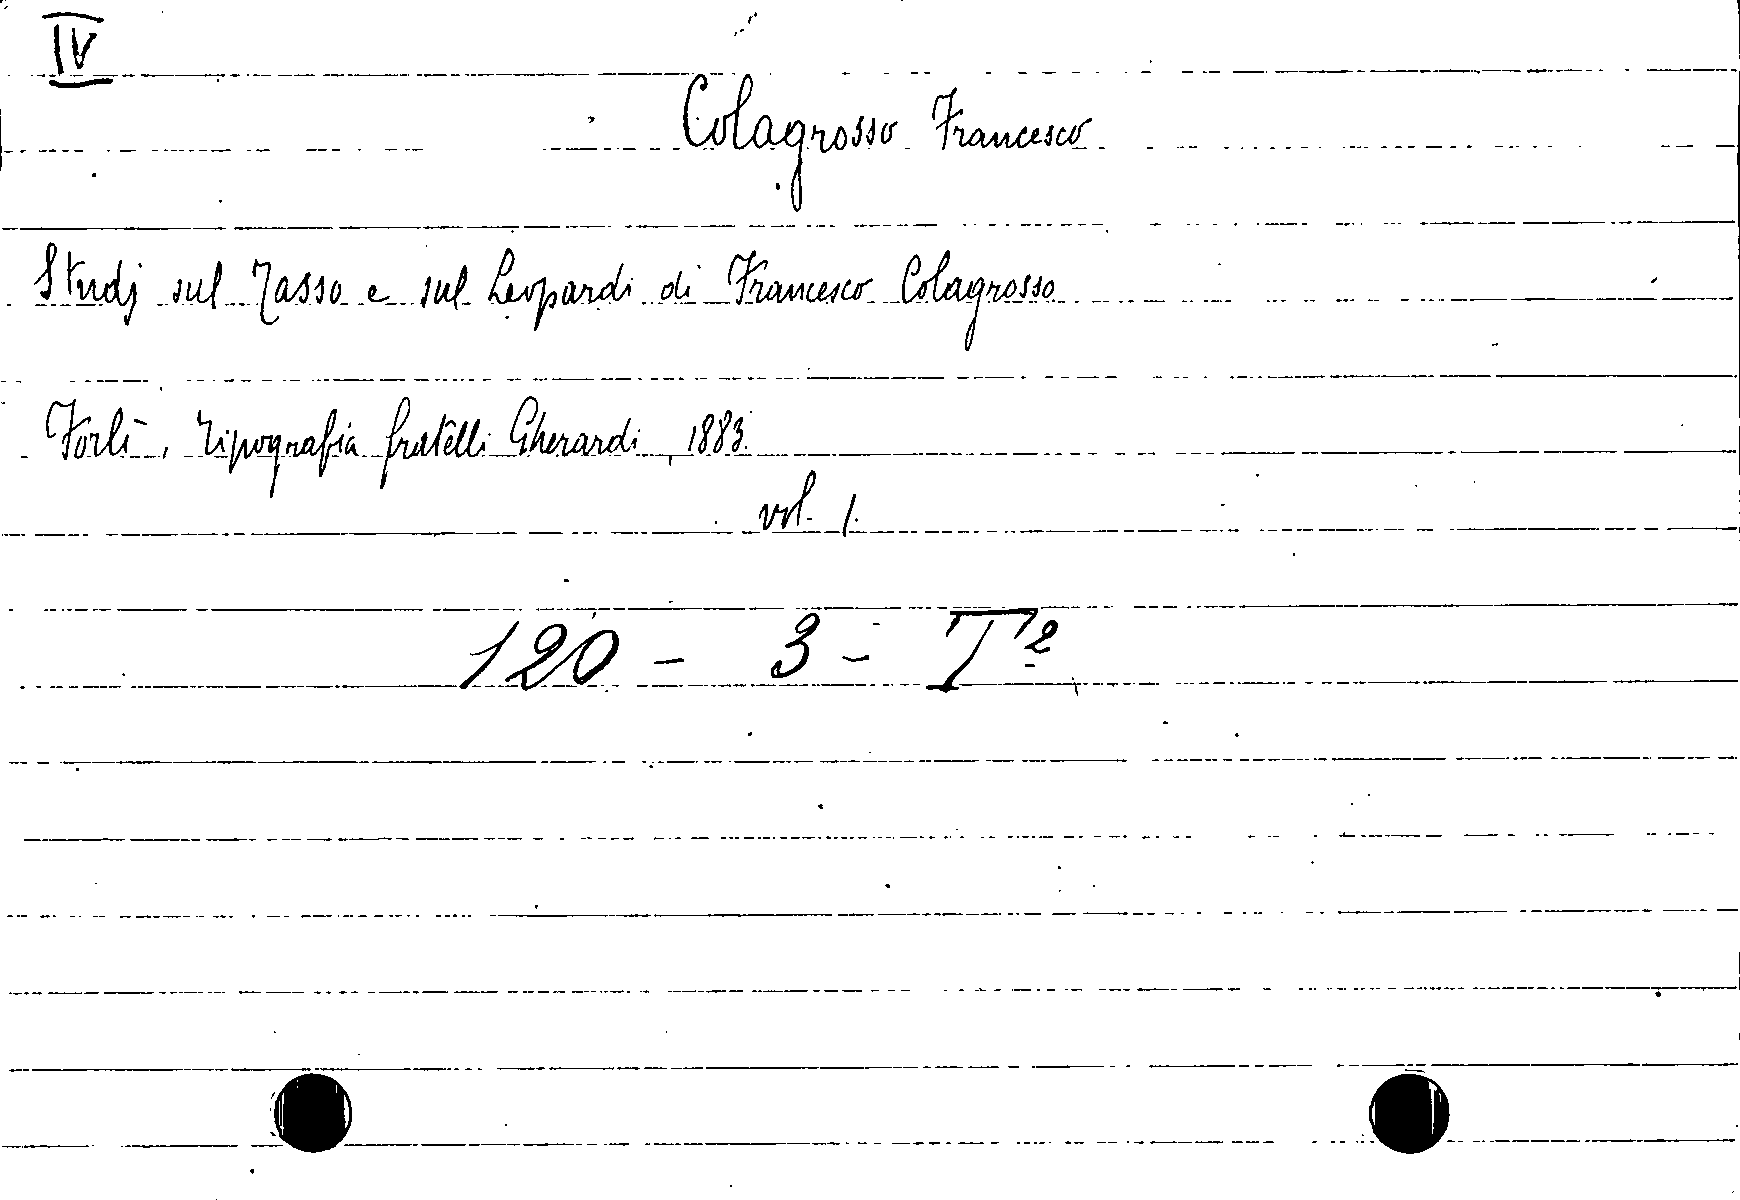 IV
Colagrosso Francesco
Studj sul Tasso e sul Leopardi di Francesco Colagrosso
Forlì, tipografia fratelli Gherardi, 1883.
vol. 1.
120 - 3 - T²